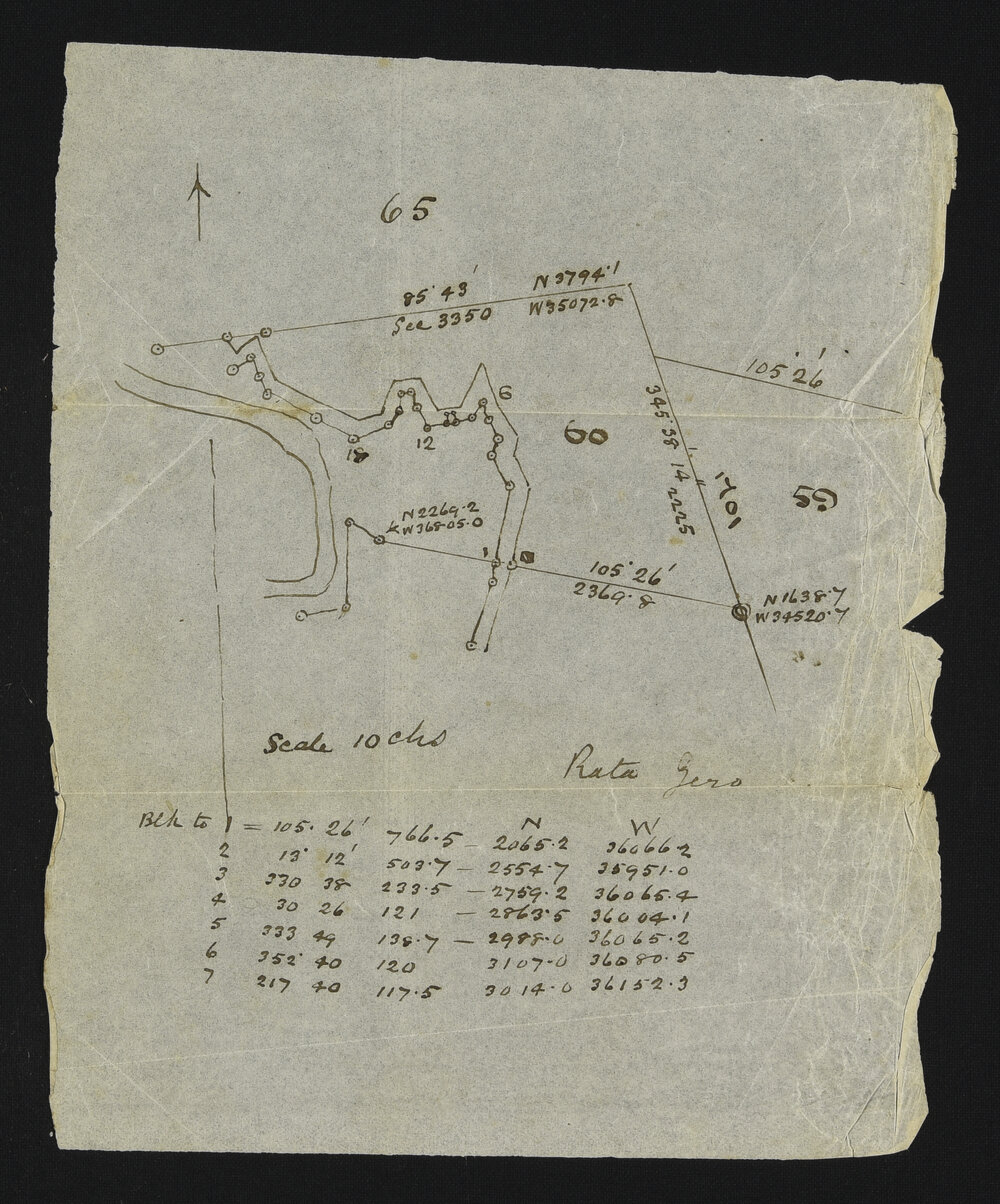 65
85° 43'
See 3350
N 3794.1
W 35072.8
105° 26'
345° 38' 14"
2225
60
59
6
12
18
N 2269.2
W 36805.0
1
105° 26'
2369.8
N 1638.7
W 34520.7
Scale 10 chs
Rata
Blk to 1 = 105° 26' 766.5 - 2065.2 36066.2
N W
2 13° 12' 503.7 - 2554.7 35951.0
3 330 38 233.5 - 2759.2 36065.4
4 30 26 121 - 2863.5 36004.1
5 333 49 138.7 - 2988.0 36065.2
6 352 40 120 3107.0 36080.5
7 217 40 117.5 3014.0 36152.3